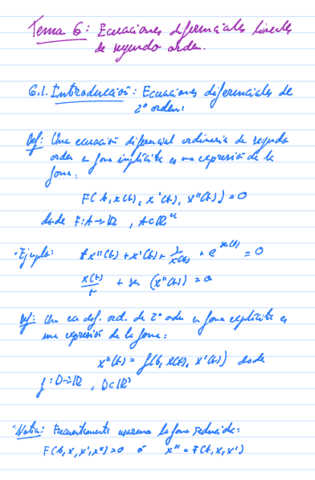 Tema 6: Ecuaciones diferenciales lineales
de segundo orden.
6.1. Introducción: Ecuaciones diferenciales de
2º orden:
Def: Una ecuación diferencial ordinaria de segundo
orden en forma implícita es una expresión de la
forma:
F(t, x(t), x'(t), x''(t)) = 0
donde F: A → ℝ, A ⊂ ℝ⁴
· Ejemplo: t x''(t) + x'(t) + 1/x(t) + e^{x(t)} = 0
x(t)/t + sen (x''(t)) = 0
Def: Una ec. dif. ord. de 2º orden en forma explícita es
una expresión de la forma:
x''(t) = f(t, x(t), x'(t)) donde
f: D → ℝ, D ⊂ ℝ³
· Nota: Frecuentemente usaremos la forma reducida:
F(t, x, x', x'') = 0 ó x'' = F(t, x, x')